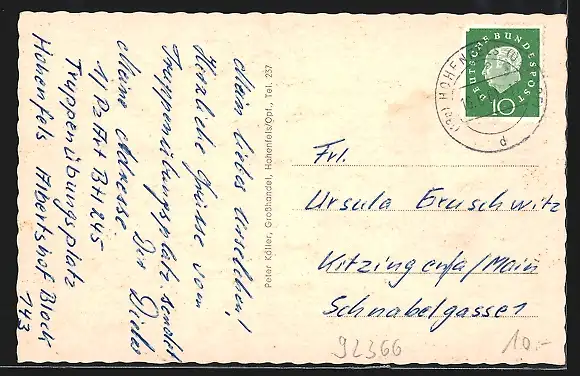 Mein liebes Urselchen!
Herzliche Grüsse vom
Truppenübungsplatz sendet
Dir Dieter
Meine Adresse
1/ Pz Art Btl 245
Truppenübungsplatz
Hohenfels Albertshof Block
143
Peter Köller, Großhandel, Hohenfels/Opf., Tel. 237
DEUTSCHE BUNDESPOST
10
HOHENFELS
d
Frl.
Ursula
Kitzingen a/Main
Schnabelgasse 1
92366
10.-